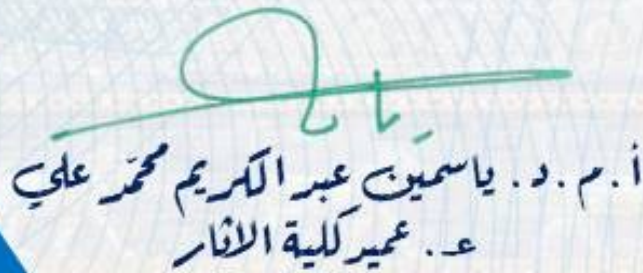 أ.م.د. ياسمين عبد الكريم محمد علي
عـ. عميد كلية الاثار